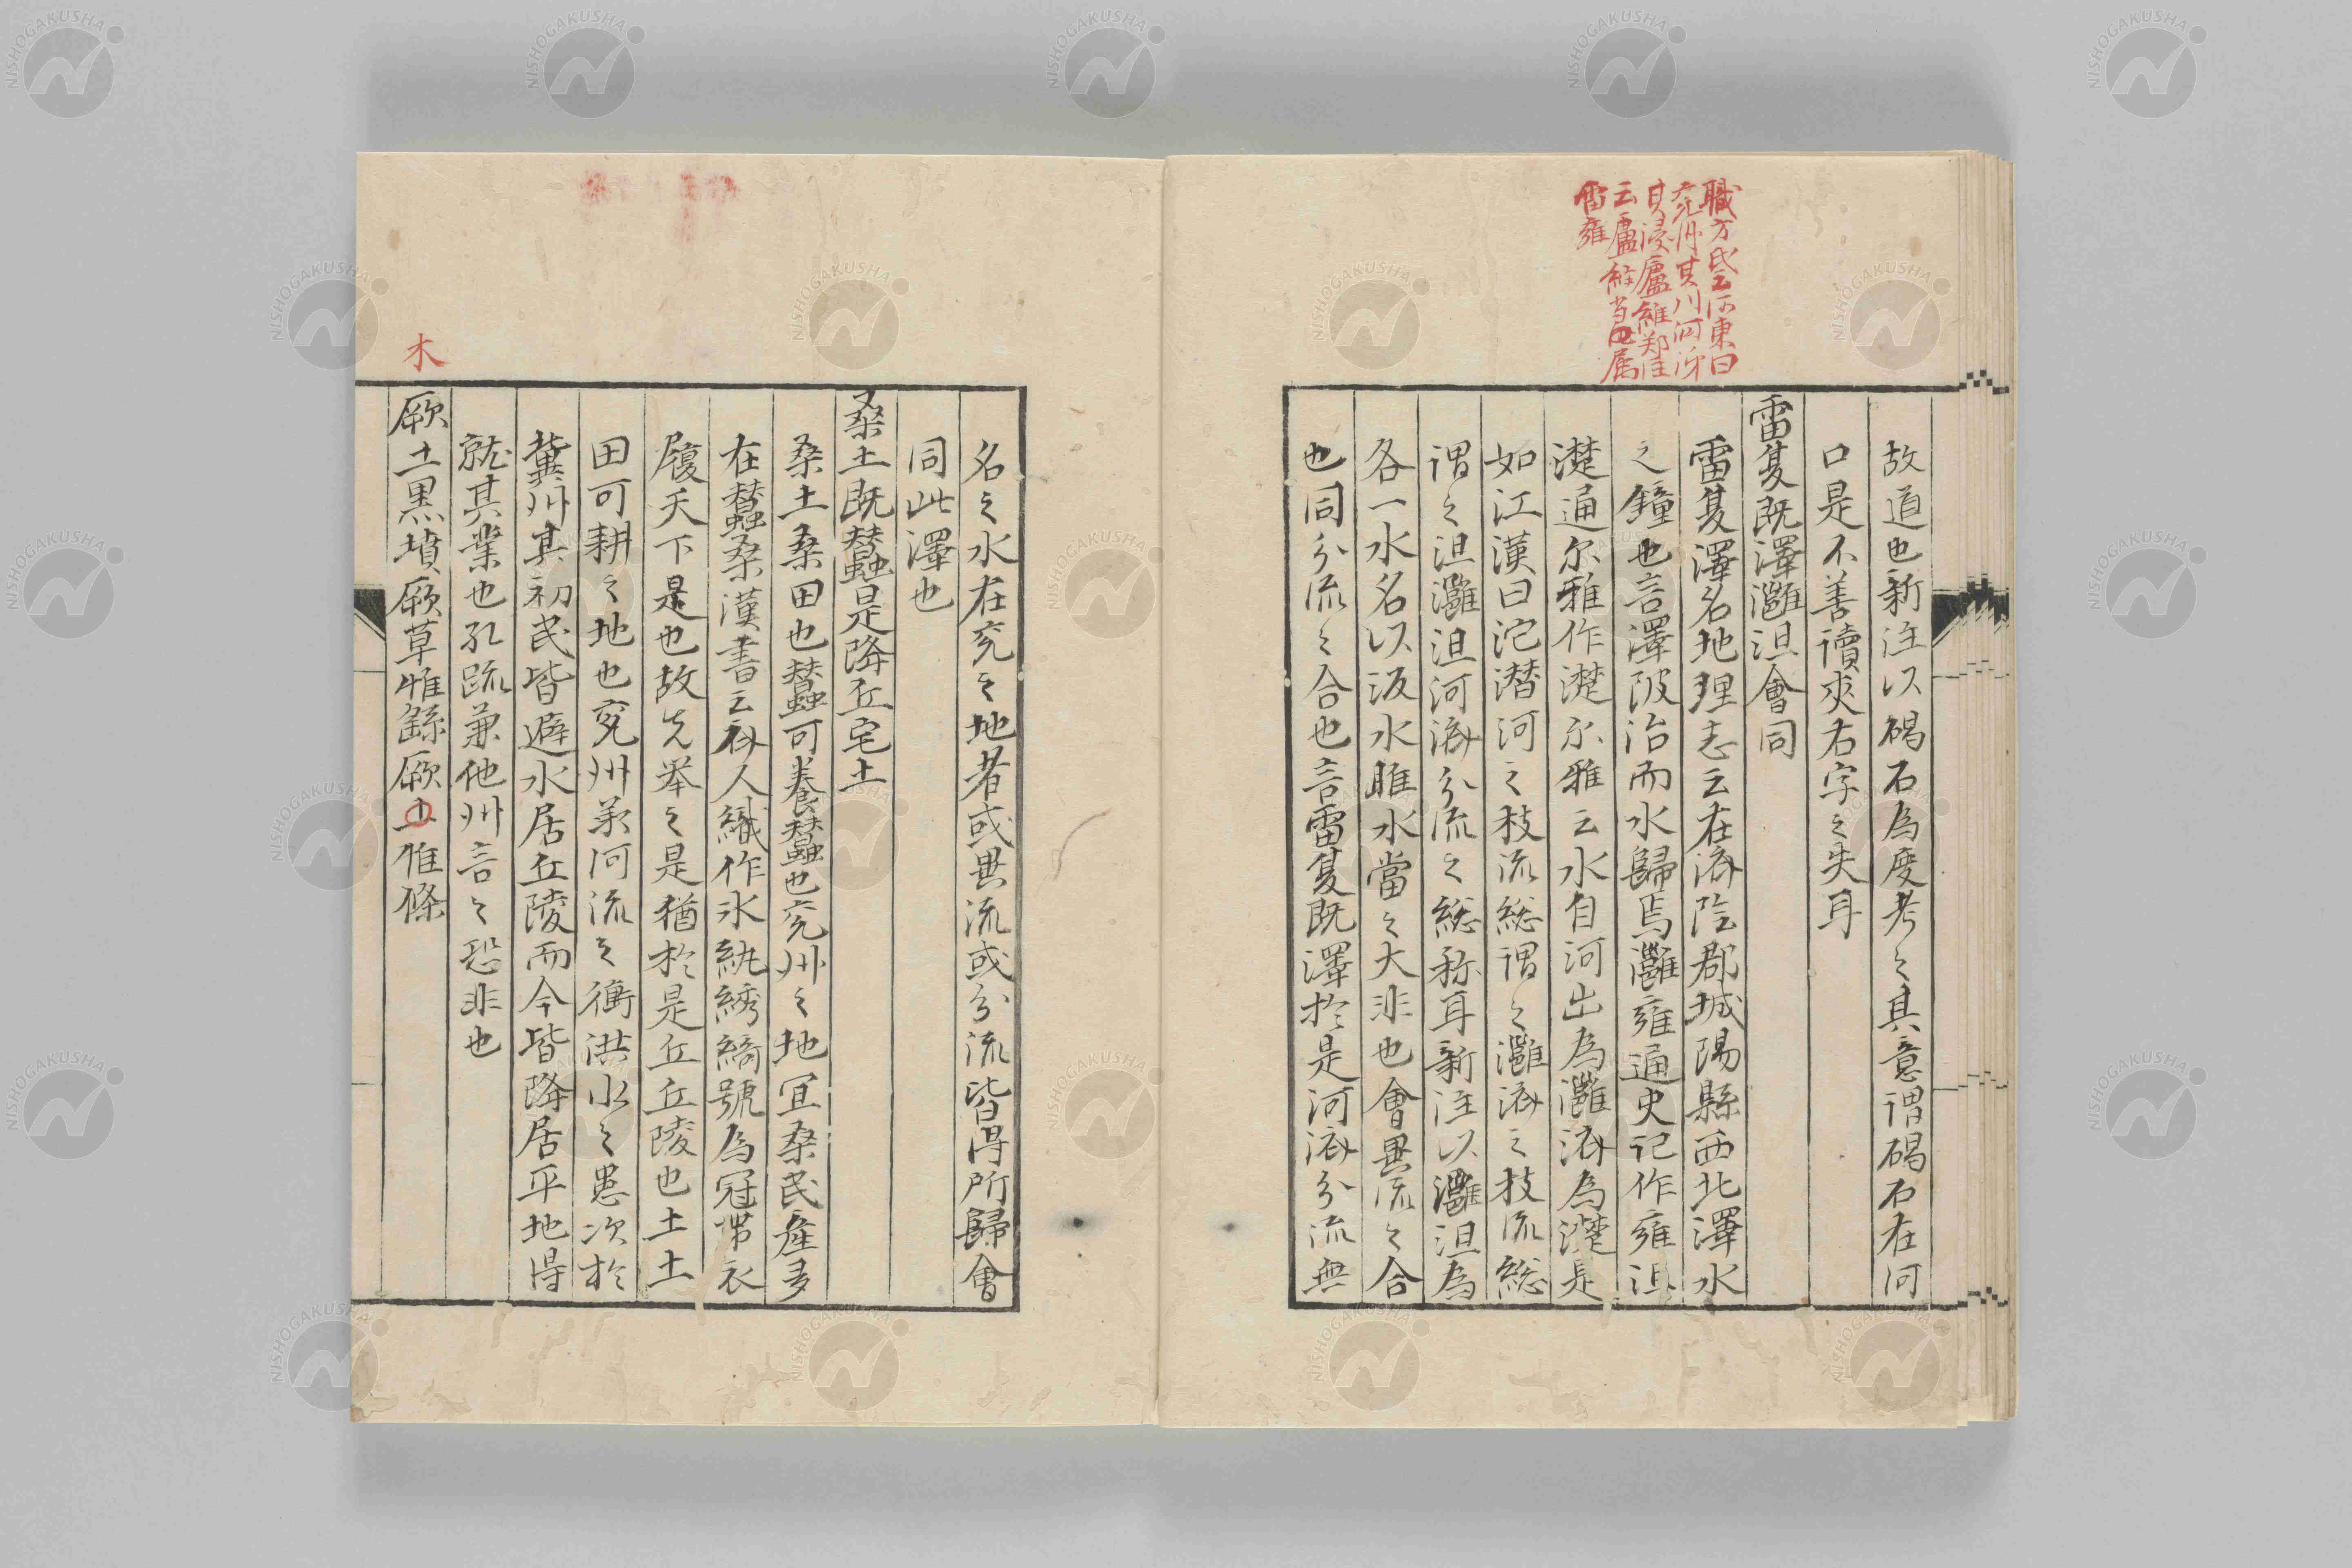 職方氏云河東曰
兗州其川河泲
其浸盧維鄭注
云盧維当為
雷雍
故道也新注以碣石為度考之其意謂碣石在河
口是不善讀夾右字之失耳
雷夏既澤灉沮會同
雷夏澤名地理志云在済陰郡城陽縣西北澤水
之鐘也言澤陂治而水歸焉灉雍通史記作雍沮
濋通尔雅作濋尔雅云水自河出為灉済為濋是
如江漢曰沱潜河之枝流総謂之灉済之枝流総
謂之沮灉沮河済分流之総称耳新注以灉沮為
各一水名以汳水睢水當之大非也會異流之合
也同分流之合也言雷夏既澤於是河済分流無
名之水在兗之地者或異流或分流皆得所歸會
同此澤也
桑土既蠶是降丘宅土
桑土桑田也蠶可養蠶也兗州之地宜桑民産多
在蠶桑漢書云斉人織作氷紈綉綺號為冠帯衣
履天下是也故先举之是猶於是丘丘陵也土土
田可耕之地也兗州承河流之衝洪水之患次於
冀州其初民皆避水居丘陵而今皆降居平地得
就其業也孔疏兼他州言之恐非也
木
厥土黒墳厥草惟繇厥土惟條
NISHOGAKUSHA